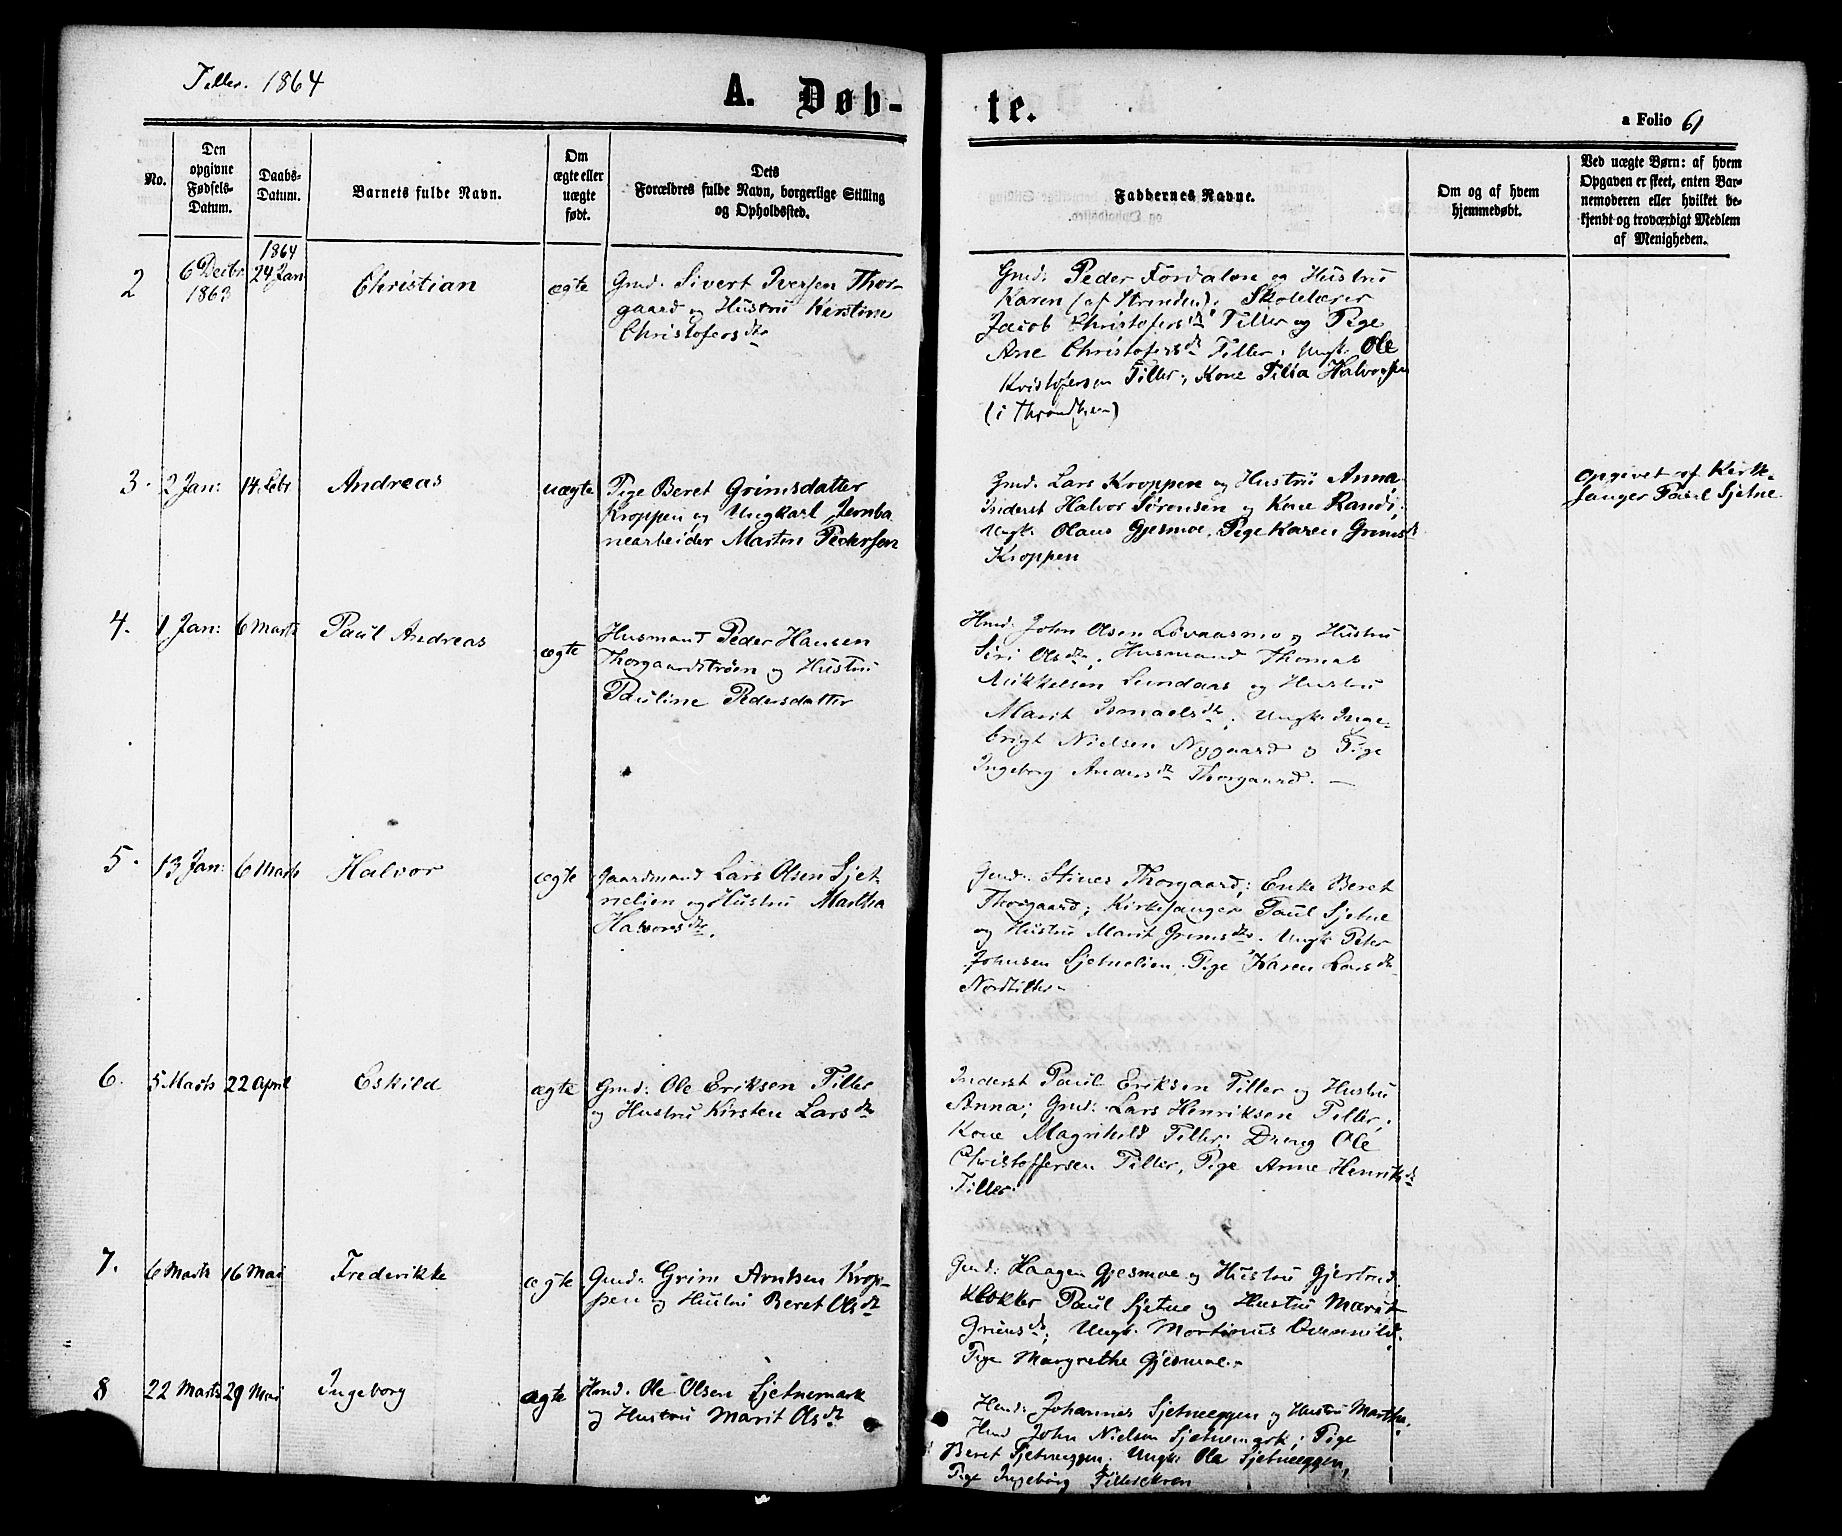 Tiller. 1864
A. Døb-
te.
a Folio 61
No.
Den
opgivne
Fødsels-
Datum.
Daabs-
Datum.
Barnets fulde Navn.
Om
ægte eller
uægte
født.
Dets
Forældres fulde Navn, borgerlige Stilling
og Opholdssted.
Faddernes Navne.
Om og af hvem
hjemmedøbt.
Ved uægte Børn: af hvem
Opgaven er skeet, enten Bar-
nemoderen eller hvilket be-
kjendt og troværdigt Medlem
af Menigheden.
2
6 Decbr
1863
1864
24 Jan
Christian
ægte
Gmd. Sivert Iversen Thor-
gaard og Hustru Kirstine
Christofersdtr
Gmd. Peder Fordalen og Hustru
Karen (af Strinden); Skolelærer
Jacob Christofers Tiller og Pige
Ane Christofersdr Tiller; Ungk: Ole
Kristofersen Tiller; Kone Halvorsen
(i Throndhjem)
3.
2 Jan:
14 Febr
Andreas
uægte
Pige Beret Grimsdatter
Kroppen og Ungkarl, Jernba
nearbeider Martin Pedersen
Gmd. Lars Kroppen og Hustru Anna,
Inderst Halvor Sørensen og Kone Randi;
Ungk: Olaus Gjesmoe, Pige Karen Grimsdr
Kroppen
Opgivet af Kirke-
sanger Paul Sjetne
4.
1 Jan:
6 Marts
Paul Andreas
ægte
Husmand Peder Hansen
Thorgaardstrøen og Hustru
Pauline Pedersdatter
Hmd. John Olsen Løvaasmo og Hustru
Siri Olsdtr, Husmand Thomas
Mikkelsen Sundaas og Hustru
Marit Ismaelsdtr; Ungk: Inge-
brigt Nielsen Nygaard og Pige
Ingeborg Andersdr Thorgaard. —
5.
13 Jan:
6 Marts
Halvor
ægte
Gaardmand Lars Olsen Sjet-
nelien og Hustru Martha
Halvorsdtr.
Gmd: Stines Thorgaard; Enke Beret
Thorgaard; Kirkesanger Paul Sjetne
og Hustru Marit Grimsdtr. Ungk Peter
Johnsen Sjetnelien, Pige Karen Larsdtr
Nordtiller.
6.
5 Marts
22 April
Eskild
ægte
Gmd: Ole Eriksen Tiller
og Hustru Kirsten Larsdtr
Inderst Paul Eriksen Tiller og Hustru
Anna; Gmd: Lars Henriksen Tiller;
Kone Magnhild Tiller; Dreng Ole
Christoffersen Tiller, Pige Anne Henriksdr
Tiller.
7.
6 Marts
16 Mai
Frederikke
ægte
Gmd: Grim Arntsen Krop-
pen og Hustru Beret Olsdtr
Gmd: Haagen Gjesmoe og Hustru Gjertrud.
Klokker Paul Sjetne og Hustru Marit
Grimsdr; Ungk. Martinus
Pige Margrethe Gjesmoe.
8
22 Marts
29 Mai
Ingeborg
ægte
Hmd. Ole Olsen Sjetnemark
og Hustru Marit Olsdtr
Hmd: Johannes Sjetneeggen og Hustru Martha.
Hmd John Nielsen Sjetnemark; Pige
Beret Sjetneeggen. Ungk: Ole Sjetneeggen,
Pige Ingeborg Tillerekren